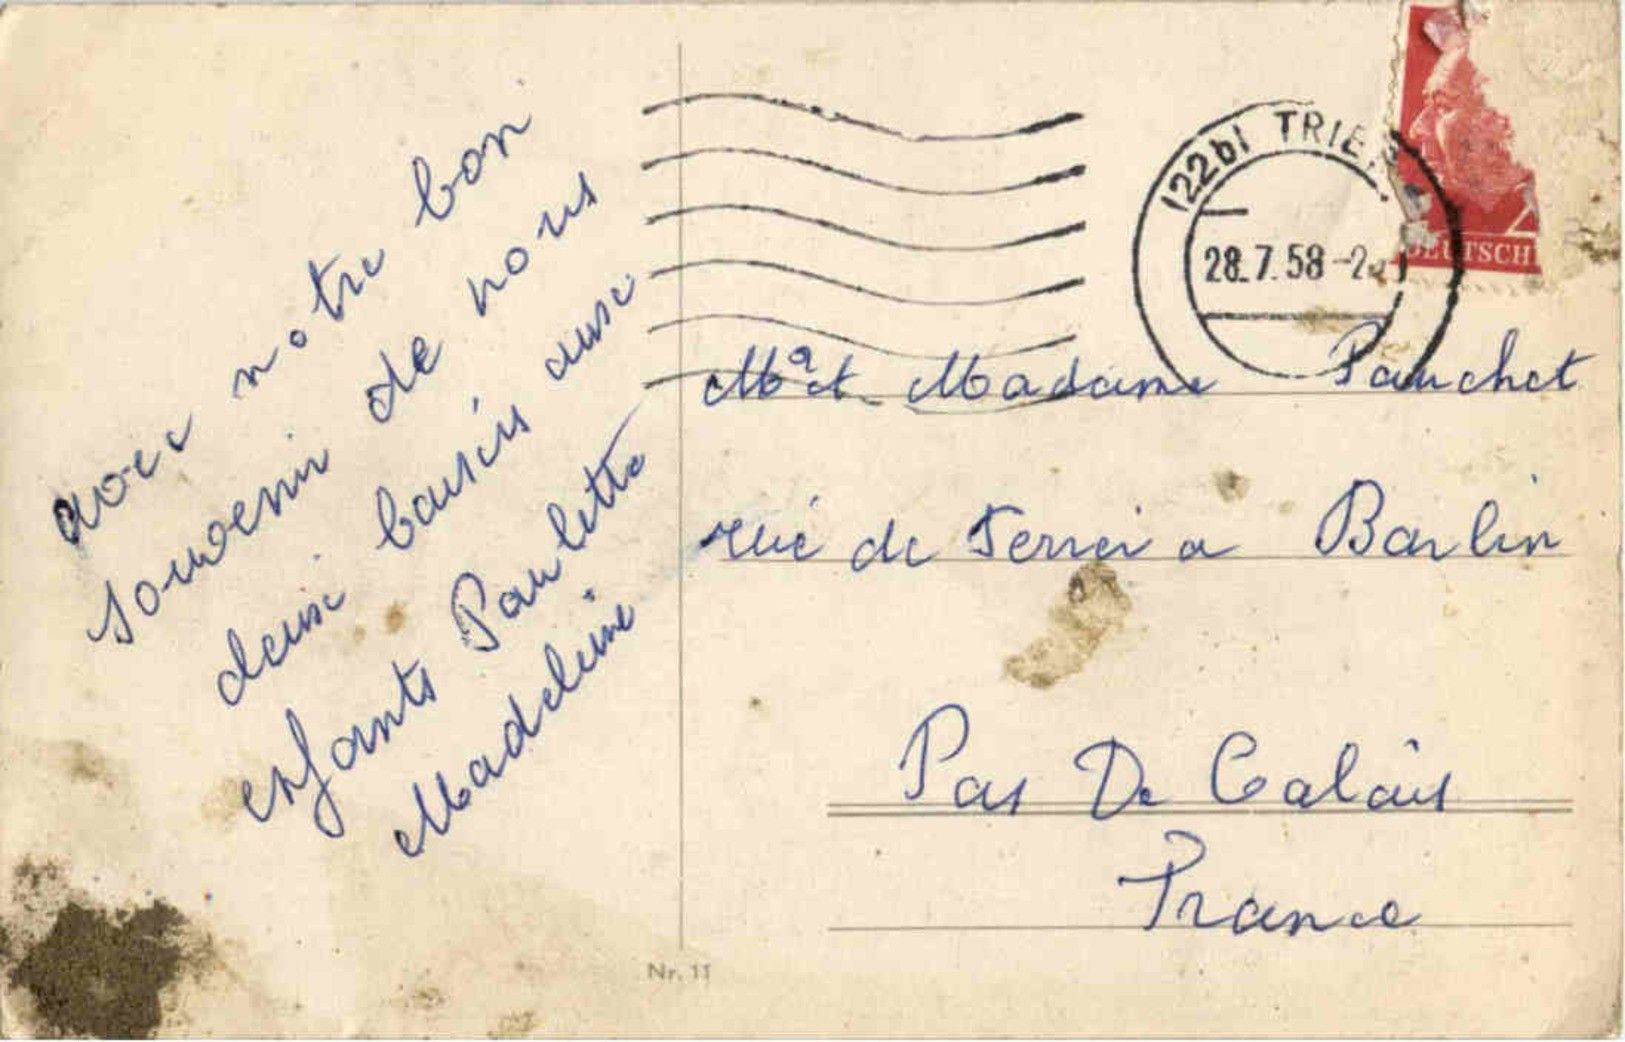 avec notre bon
souvenir de nous
deux baisers aux
enfants Paulette
Madeleine
(22b) TRIER
28.7.58-2
DEUTSCH
Mr et Madame Pauchet
rue de Verrier a Barlin
Pas De Calais
France
Nr. 11